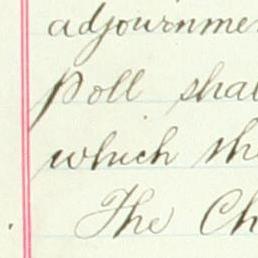 adjournme
Poll shal
which sh
The Ch